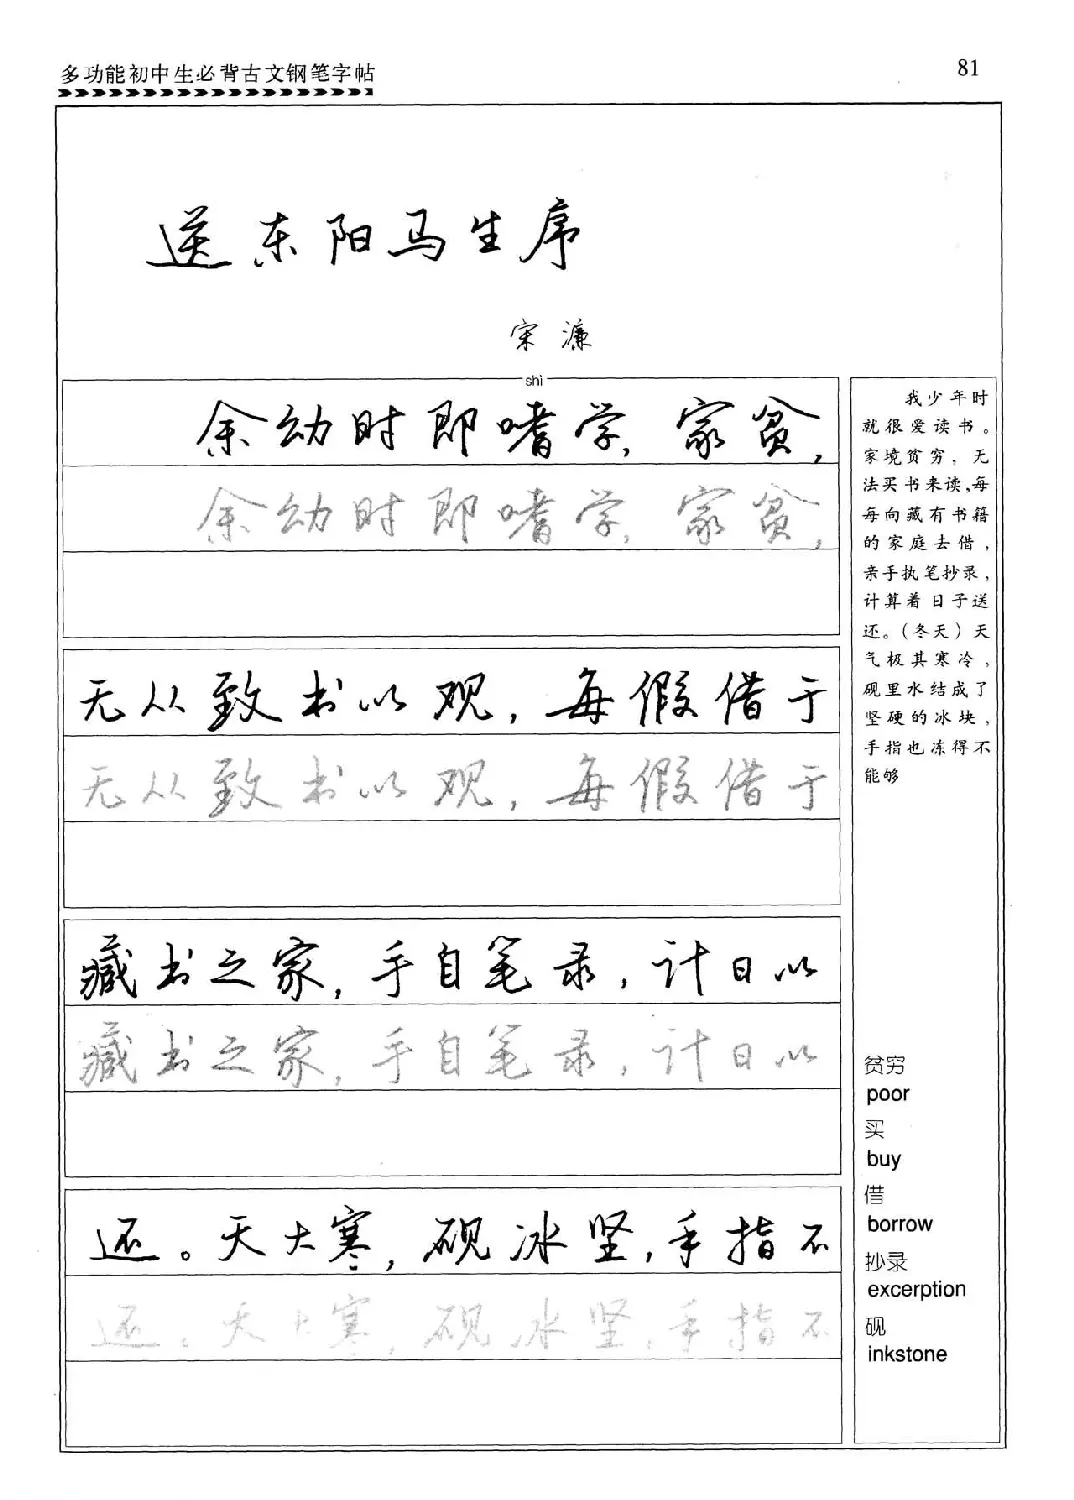 多功能初中生必背古文钢笔字帖
81
送东阳马生序
宋濂
shì
余幼时即嗜学,家贫,
余幼时即嗜学,家贫,
无从致书以观,每假借于
无从致书以观,每假借于
藏书之家,手自笔录,计日以
藏书之家,手自笔录,计日以
还。天大寒,砚冰坚,手指不
还。天大寒,砚冰坚,手指不
我少年时
就很爱读书。
家境贫穷,无
法买书来读,每
每向藏有书籍
的家庭去借,
亲手执笔抄录,
计算着日子送
还。(冬天)天
气极其寒冷,
砚里水结成了
坚硬的冰块,
手指也冻得不
能够
贫穷
poor
买
buy
借
borrow
抄录
excerption
砚
inkstone